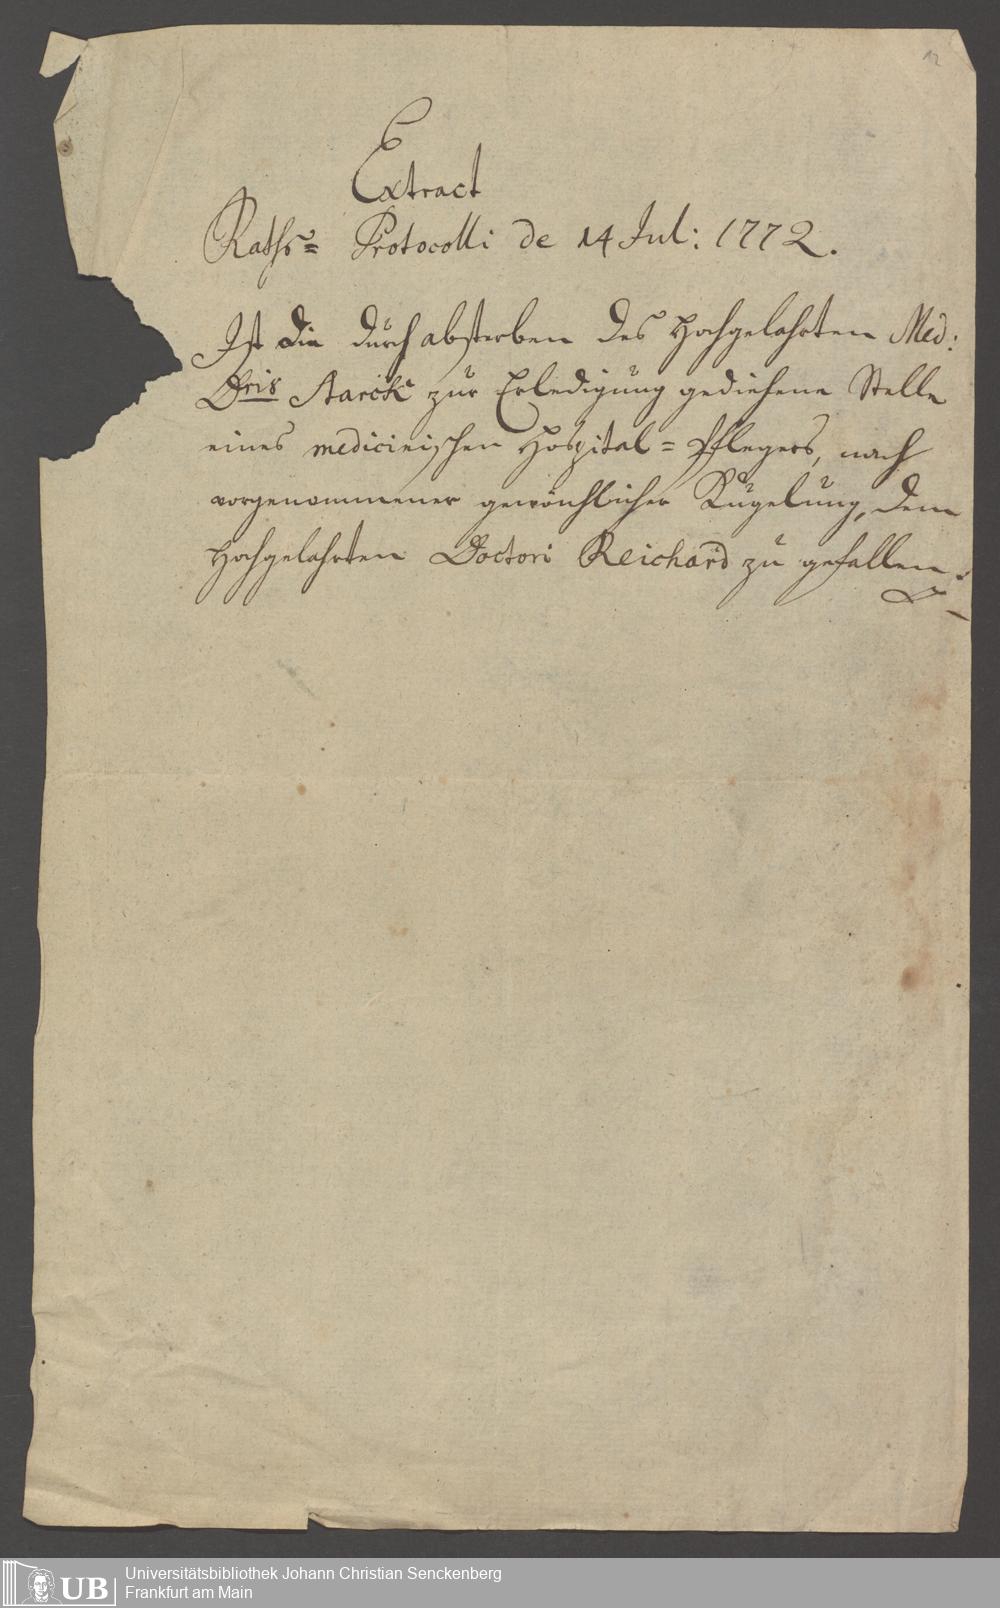 12
Extract
Raths= Protocolli de 14 Jul: 1772.
Ist die durch absterben des Hochgelahrten Med:
Dris Starck zur Erledigung gediehene Stelle
eines medicinischen Hospital=Pflegers, nach
vorgenommener gewöhnlicher Kugelung, dem
Hochgelahrten Doctori Reichard zu gefallen.
UB
Universitätsbibliothek Johann Christian Senckenberg
Frankfurt am Main